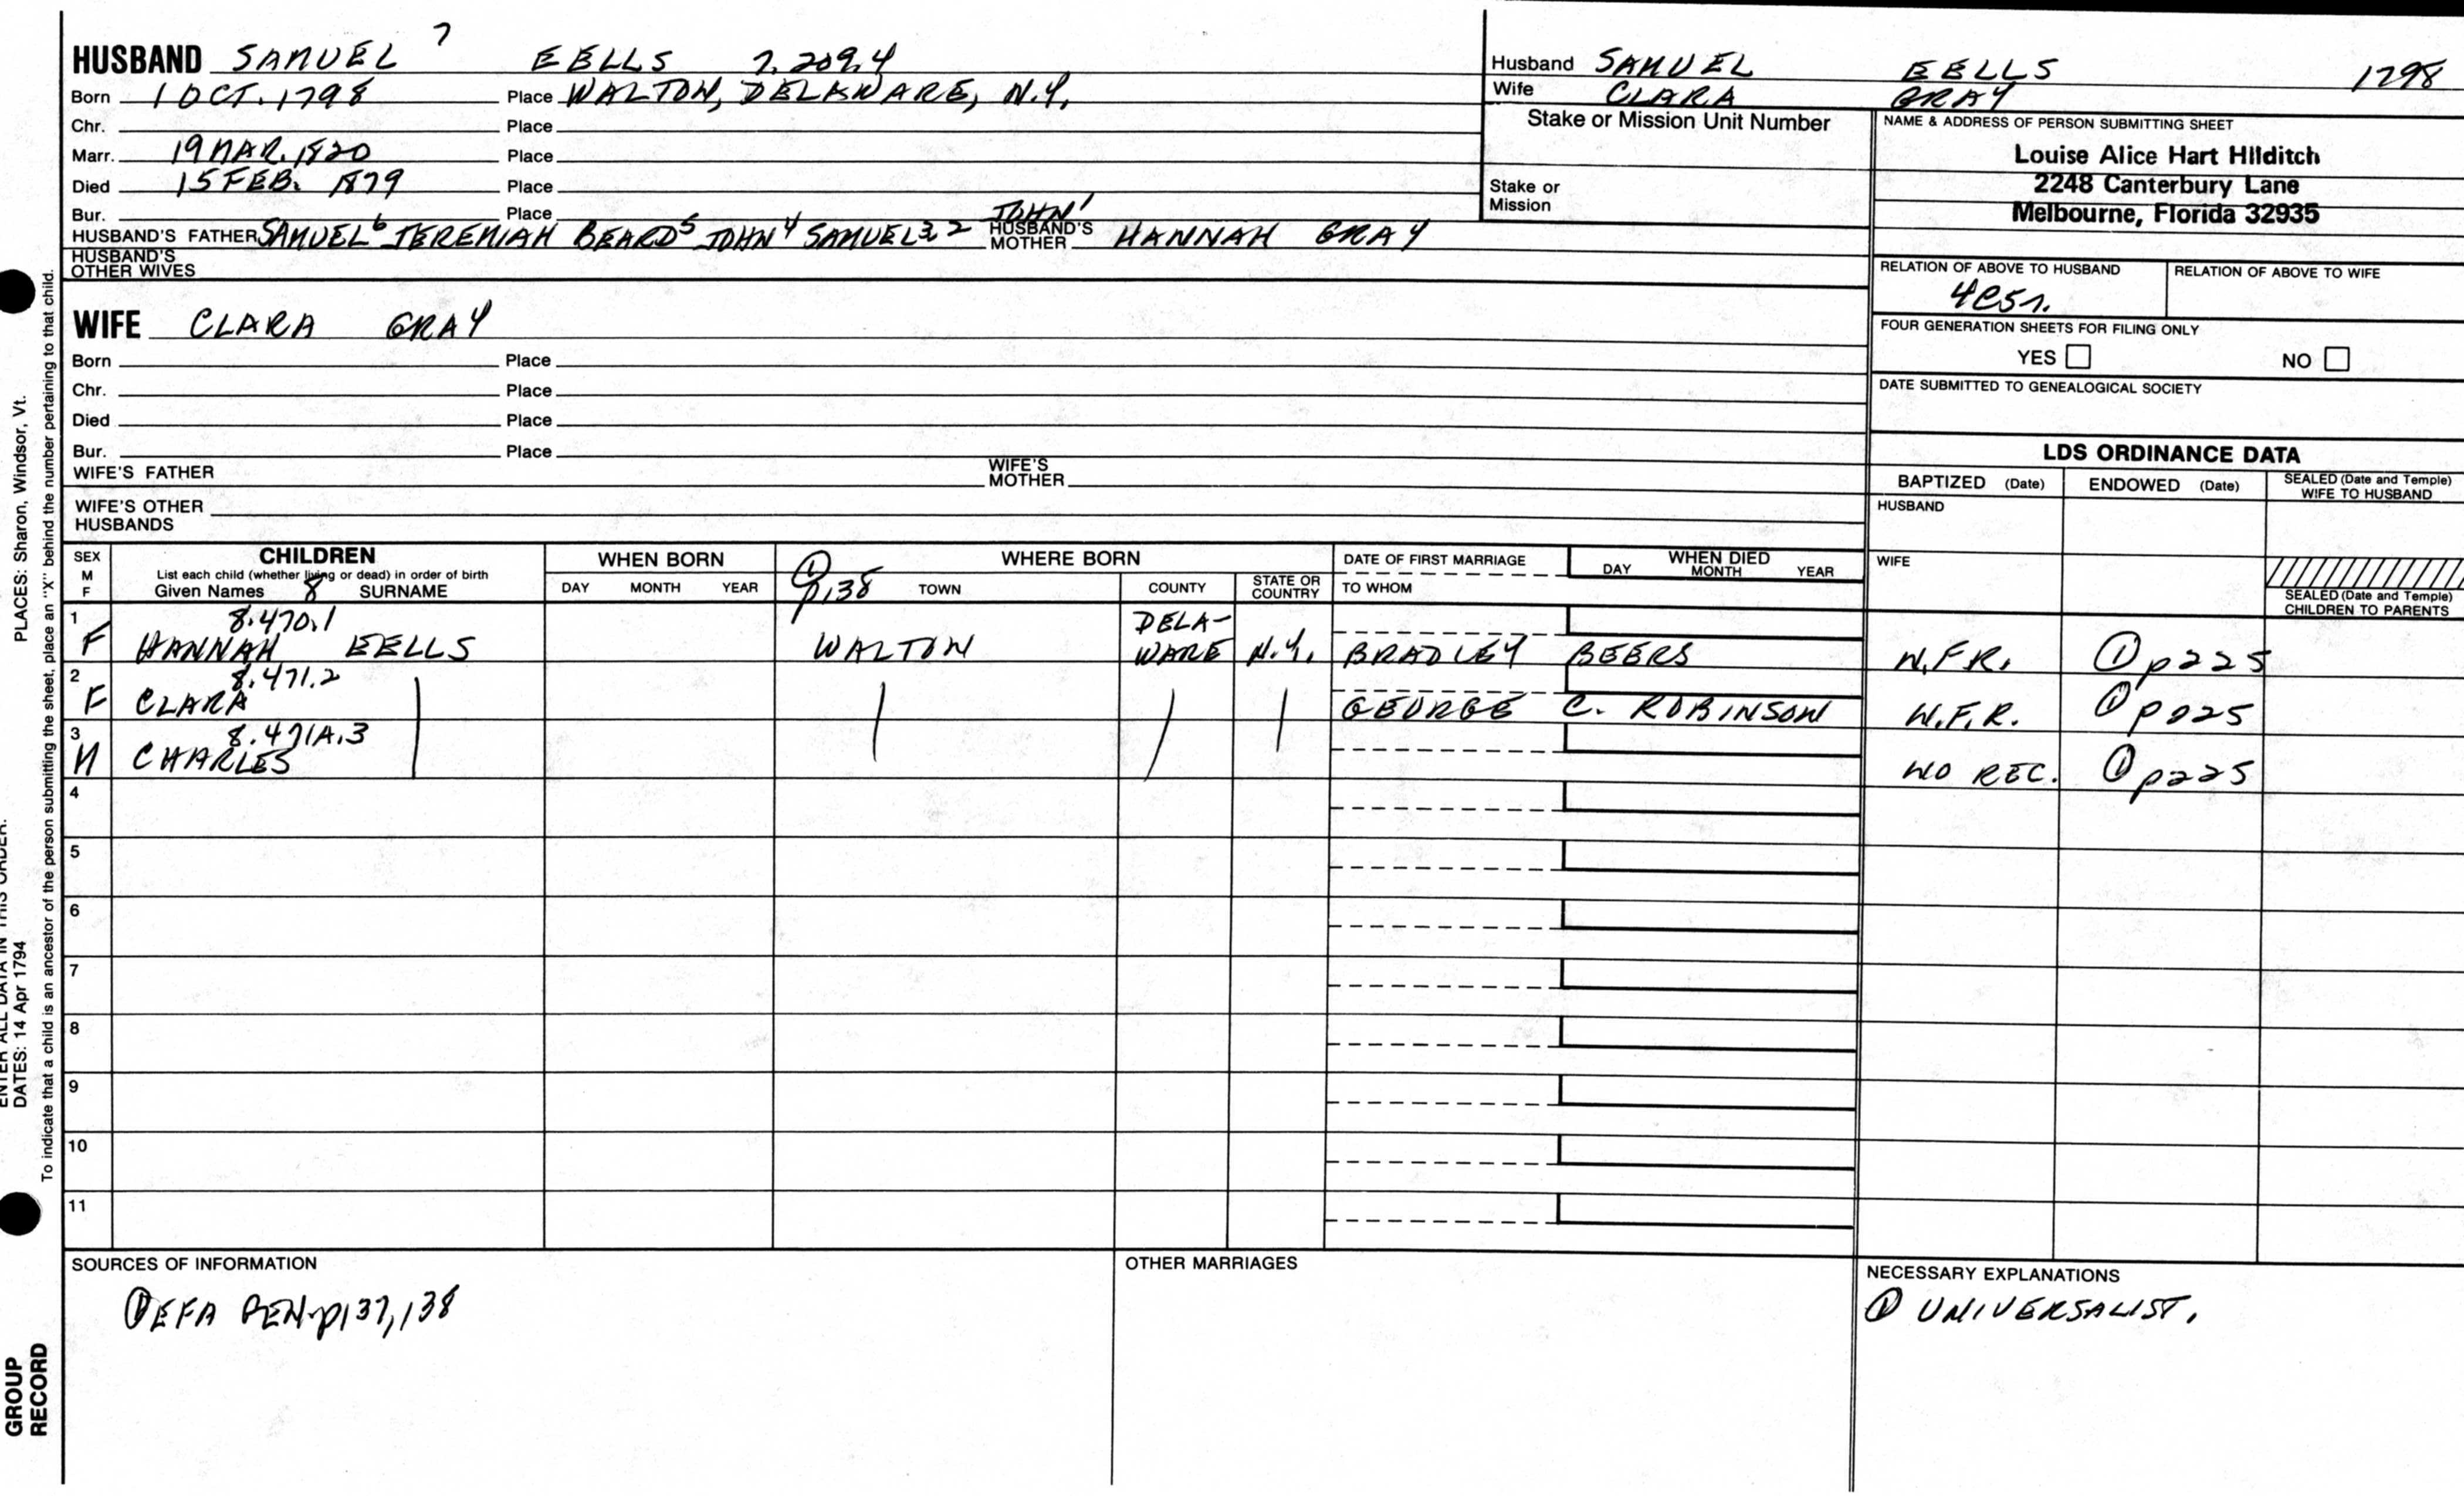 HUSBAND SAMUEL 7 EELLS 7.209.4
Born 1 OCT. 1798 Place WALTON, DELAWARE, N.Y.
Chr. Place
Marr. 19 MAR. 1820 Place
Died 15 FEB. 1879 Place
Bur. Place
HUSBAND'S FATHER SAMUEL6 JEREMIAH BEARD5 JOHN4 SAMUEL3,2 JOHN1 HUSBAND'S MOTHER HANNAH GRAY
HUSBAND'S OTHER WIVES
Husband SAMUEL EELLS 1798
Wife CLARA GRAY
Stake or Mission Unit Number
Stake or Mission
NAME & ADDRESS OF PERSON SUBMITTING SHEET
Louise Alice Hart Hilditch
2248 Canterbury Lane
Melbourne, Florida 32935
RELATION OF ABOVE TO HUSBAND RELATION OF ABOVE TO WIFE
FOUR GENERATION SHEETS FOR FILING ONLY
YES NO
DATE SUBMITTED TO GENEALOGICAL SOCIETY
WIFE CLARA GRAY
Born Place
Chr. Place
Died Place
Bur. Place
WIFE'S FATHER WIFE'S MOTHER
WIFE'S OTHER HUSBANDS
LDS ORDINANCE DATA
BAPTIZED (Date) ENDOWED (Date) SEALED (Date and Temple) WIFE TO HUSBAND
HUSBAND
WIFE
SEALED (Date and Temple) CHILDREN TO PARENTS
SEX M F CHILDREN WHEN BORN WHERE BORN DATE OF FIRST MARRIAGE WHEN DIED
List each child (whether living or dead) in order of birth
Given Names 8 SURNAME DAY MONTH YEAR ① p.138 TOWN COUNTY STATE OR COUNTRY TO WHOM DAY MONTH YEAR
1 8.470.1 DELA-
F HANNAH EELLS WALTON WARE N.Y. BRADLEY BEERS W.F.R. ① p225
2 8.471.2
F CLARA GEORGE C. ROBINSON W.F.R. ① p225
3 8.471A.3
M CHARLES NO REC. ① p225
4
5
6
7
8
9
10
11
SOURCES OF INFORMATION
① EFA GEN. p137,138
OTHER MARRIAGES
NECESSARY EXPLANATIONS
① UNIVERSALIST.
PLACES: Sharon, Windsor, Vt.
ENTER ALL DATA IN THIS ORDER:
DATES: 14 Apr 1794
To indicate that a child is an ancestor of the person submitting the sheet, place an "X" behind the number pertaining to that child.
GROUP
RECORD